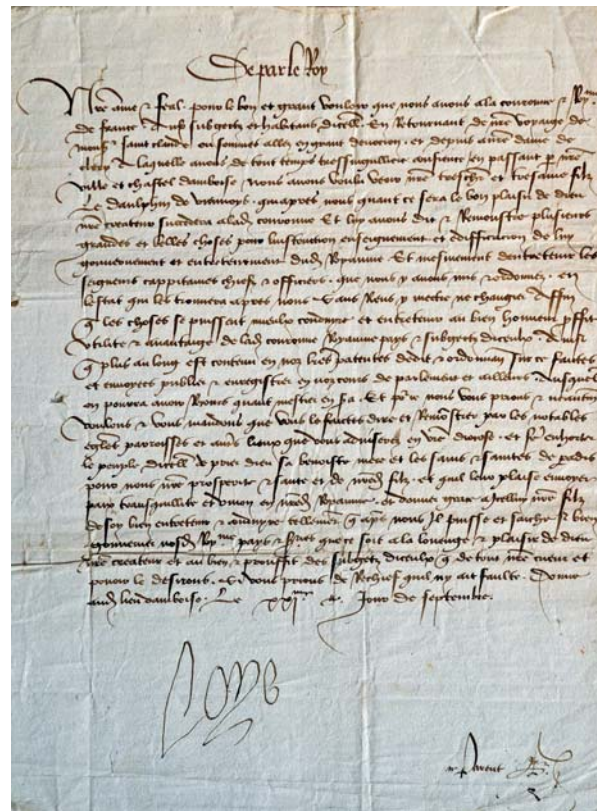 De par le Roy
Nre ame & feal. pour le bon et grant vouloir que nous avons a la couronne & Roy.me
de france. & aux subgectz et habitans dicell. En Retournant de nre voyage de
mons.r saint claude ou sommes allez en grant devocion. et depuis a nre dame de
clery a laquelle avons de tout temps tressinguliere confience en passant p nre
ville et chastel damboise. Nous avons voulu veoir nre treschr & tresame filz
Le daulphin de viennois. qui apres nous quant ce sera le bon plaisir de dieu
nre createur succedera a lad couronne Et luy avons dit & Remonstre plusieurs
grandes et belles choses pour linstruction enseignement et ediffication de luy
gouvernement et entretenement dud Royaume Et mesmement dentretenir les
seigneurs cappitaines chiefz & officiers. que nous y avons mis & ordonnez. en
lestat quil les trouvera apres nous. Sans Riens y mectre ne changier Affin
q les choses se puissent mieulx conduyre. et entretenir au bien honneur pffit
utilite & avantaige de lad couronne Royaume pays & subgectz diceulx. Ainsi
q plus au long est contenu en noz lres patentes dedit & ordonnan sur ce faictes
et envoyees publier & enregistrer en noz cours de parlement et ailleurs. Ausquelz
on pourra avoir Recours quant mestier en sa. Et pce nous vous prions & neantmoins
voulons & vous mandons que vous le faictes dire et Remonstrer par les notables
eglises parroisses et autres lieux que vous adviserez en vre diocese. et fe enhorter
le peuple dicell de prier dieu sa benoiste mere et les sains & sainctes de padis
pour nous nre prosperite & sante et de nred filz. et quil leur plaise envoyer
paix transquillite et union en nred Royaume. et donner grace a icelluy nre filz
de soy bien entretenir & conduyre. tellement q aps nous Il puisse et saiche si bien
gouverner nosd Roy.me pays & que ce soit a la louenge & plaisir de dieu
nre createur et au bien & prouffit des subgetz diceulx q de tout nre cueur et
povoir le desirons. Si vous prions de Rechief quil ny ait faulte. Donne
aud lieu damboise. Le xxi.me Jour de septembre.
Loys
Parent